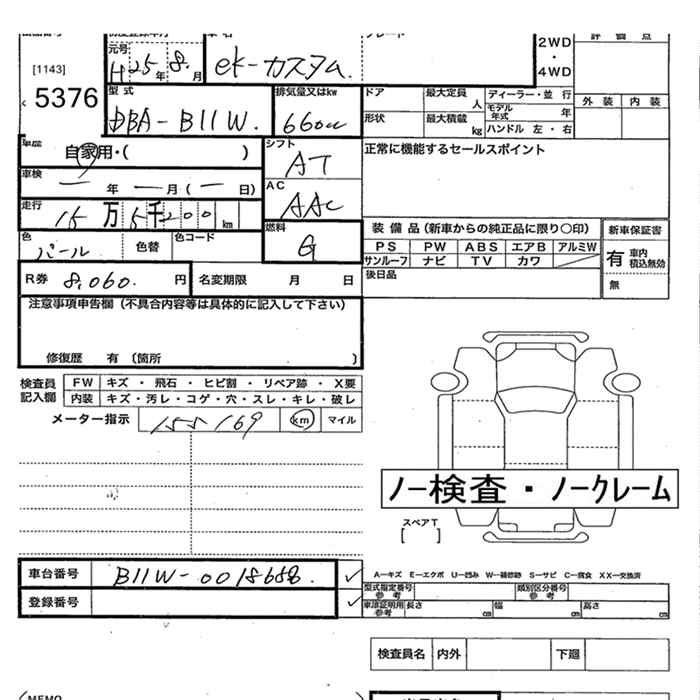 元号
H25年 8.月
ek-カスタム.
2WD
・
4WD
評 価 点
外 装 内 装
[1143]
5376
型 式
DBA-B11W.
排気量又はkw
660cc
ドア
形状
最大定員
人
最大積載
kg
ディーラー・並 行
モデル年式 年
ハンドル 左・右
自家用・( )
シフト
AT
正常に機能するセールスポイント
車検
一 年 一 月 ( 一 日)
AC
AAC
走行
15万5千200km
燃料
G
装 備 品 (新車からの純正品に限り○印)
新車保証書
PS PW ABS エアB アルミW
サンルーフ ナビ TV カワ
後日品
有 車内積込無効
無
色
パール
色替
色コード
R券 8,060. 円
名変期限 月 日
注意事項申告欄 (不具合内容等は具体的に記入して下さい)
修復歴 有 〔箇所 〕
検査員
記入欄
FW キズ ・ 飛石 ・ ヒビ割 ・ リペア跡 ・ X要
内装 キズ・汚レ・コゲ・穴・スレ・キレ・破レ
メーター指示 155169 km マイル
ノー検査・ノークレーム
スペアT
[ ]
車台番号 B11W-0018658. ✓
登録番号 ✓
A―キズ E―エクボ U―凹み W―補修跡 S―サビ C―腐食 XX―交換済
型式指定番号
参 考
類別区分番号
参 考
車庫証明用
参考
長さ cm
幅 cm
高さ cm
検査員名 内外 下廻
MEMO